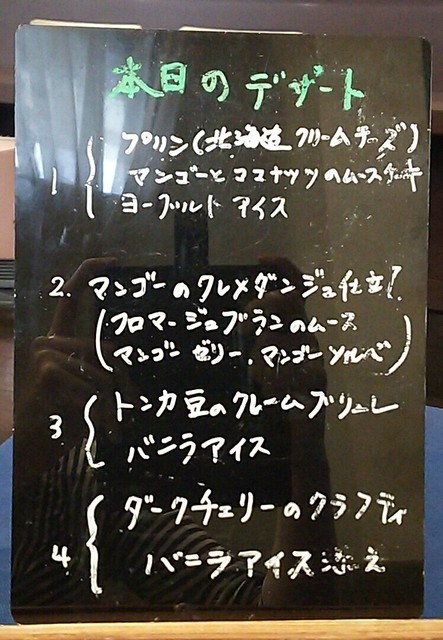 本日のデザート
1 プリン(北海道クリームチーズ)
マンゴーとココナッツのムースケーキ
ヨーグルトアイス
2. マンゴーのクレメダンジュ仕立て
(フロマージュブランのムース
マンゴーゼリー、マンゴーソルベ)
3 トンカ豆のクレームブリュレ
バニラアイス
4 ダークチェリーのクラフティ
バニラアイス添え